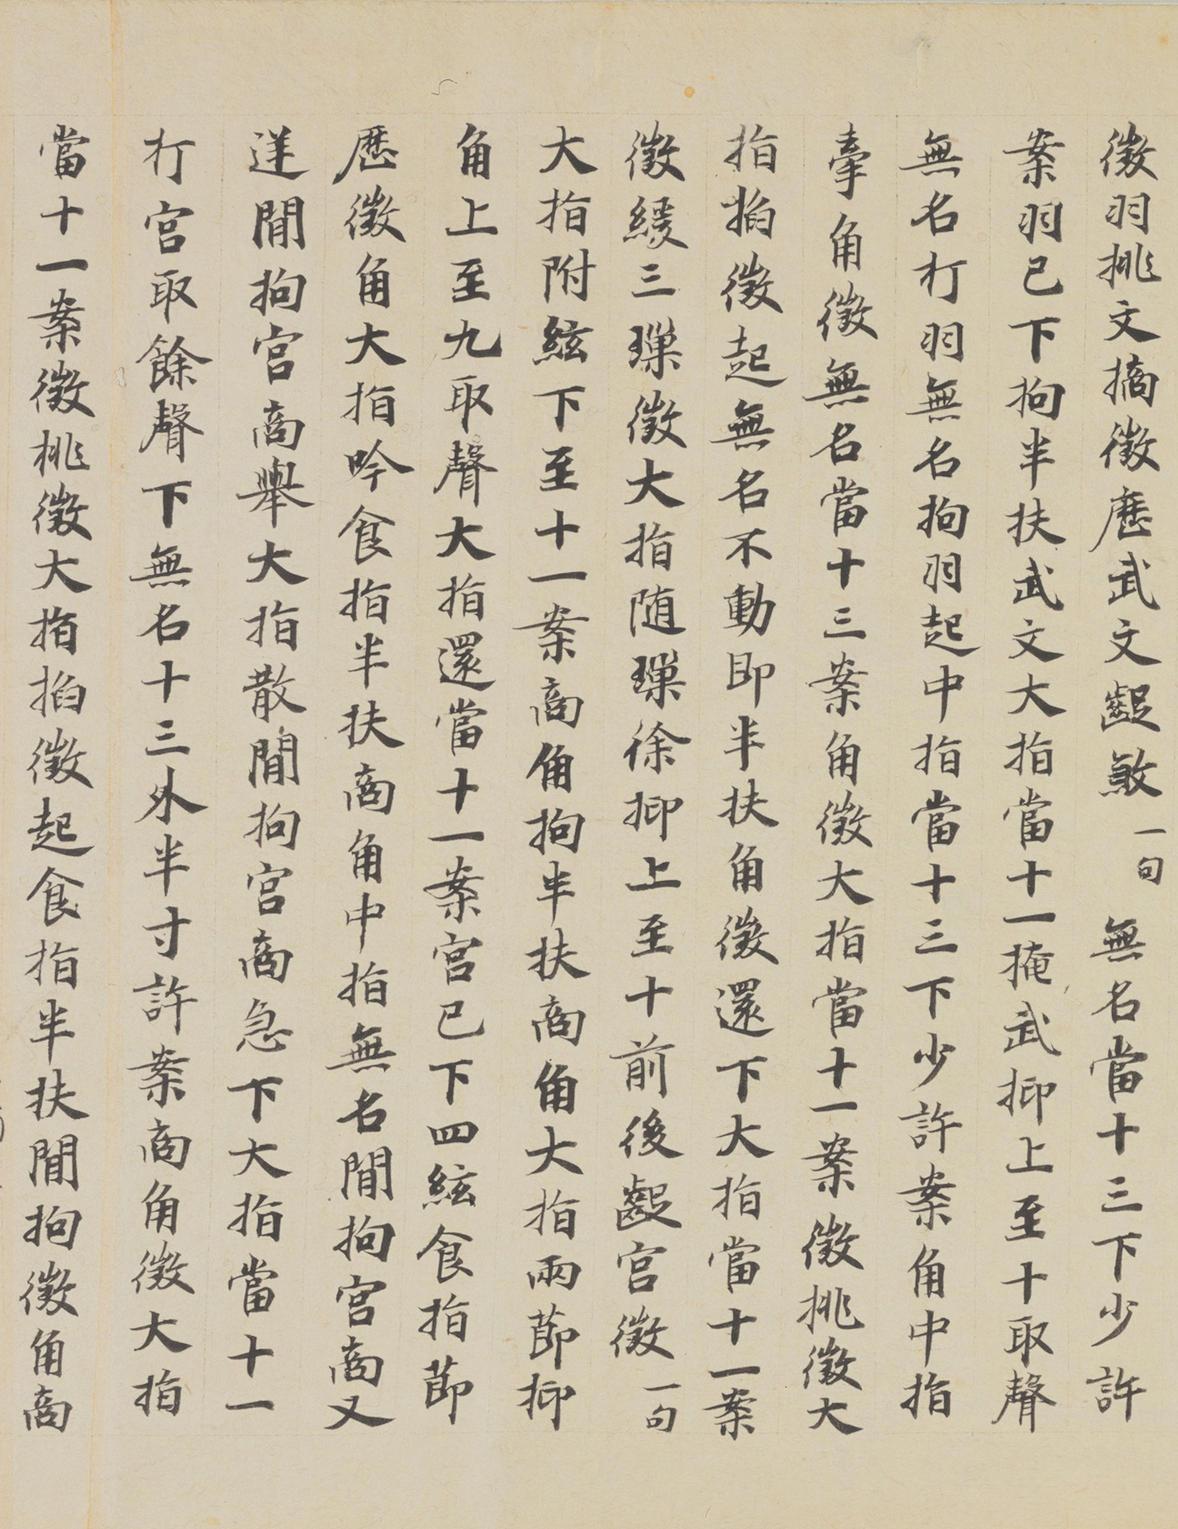 徵羽挑文摘徵歷武文齪煞一句無名當十三下少許
案羽已下拘半扶武文大指當十一掩武抑上至十取聲
無名打羽無名拘羽起中指當十三下少許案角中指
牽角徵無名當十三案角徵大指當十一案徵挑徵大
指掐徵起無名不動即半扶角徵還下大指當十一案
徵緩三瑮徵大指随瑮徐抑上至十前後齪宮徵一句
大指附絃下至十一案商角拘半扶商角大指兩節抑
角上至九取聲大指還當十一案宮已下四絃食指節
歷徵角大指吟食指半扶商角中指無名閒拘宮商又
逆閒拘宮商舉大指散閒拘宮商急下大指當十一
打宮取餘聲下無名十三外半寸許案商角徵大指
當十一案徵挑徵大指掐徵起食指半扶閒拘徵角商